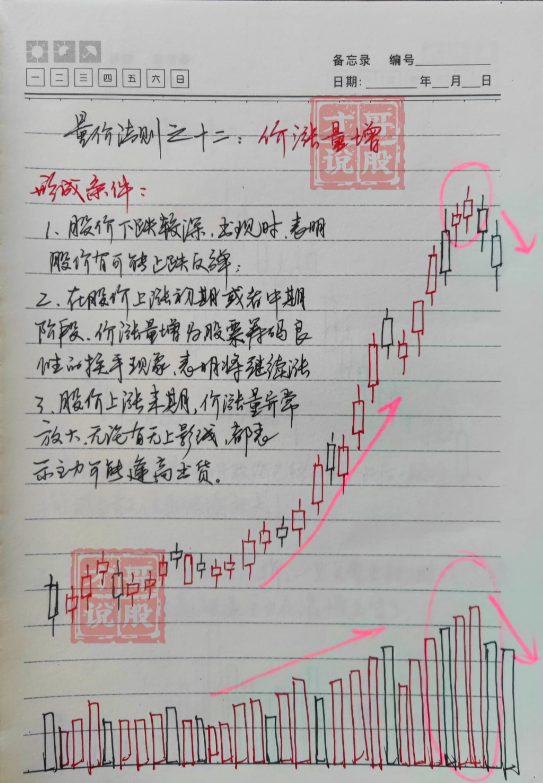 备忘录 编号
一 二 三 四 五 六 日
日期: 年 月 日
量价法则之十二：价涨量增
形成条件：
1、股价下跌较深，出现时，表明
股价有可能止跌反弹；
2、在股价上涨初期或者中期
阶段，价涨量增为股票筹码良
性的换手现象，表明将继续涨
3、股价上涨末期，价涨量异常
放大，无论有无上影线，都表
示主力可能逢高出货。
哥
说股
哥
说股